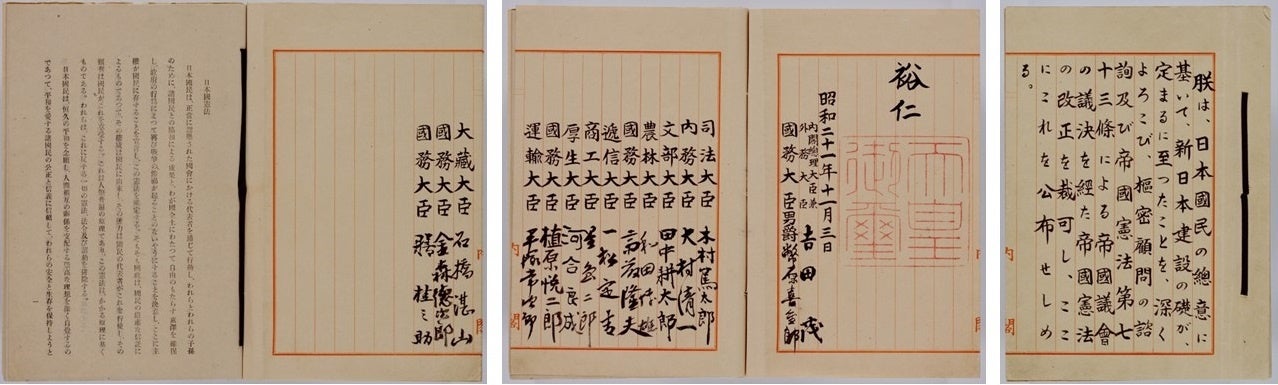 朕は、日本國民の總意に
基いて、新日本建設の礎が、
定まるに至つたことを、深く
よろこび、樞密顧問の諮
詢及び帝國憲法第七
十三條による帝國議會
の議決を経た帝國憲法
の改正を裁可し、ここ
にこれを公布せしめ
る。
内閣
裕仁
天皇御璽
昭和二十一年十一月三日
内閣總理大臣兼
外務大臣 吉田茂
國務大臣 男爵 幣原喜重郎
内閣
司法大臣 木村篤太郎
内務大臣 大村清一
文部大臣 田中耕太郎
農林大臣 和田博雄
國務大臣 斎藤隆夫
遞信大臣 一松定吉
商工大臣 星島二郎
厚生大臣 河合良成
國務大臣 植原悦二郎
運輸大臣 平塚常次郎
内閣
大藏大臣 石橋湛山
國務大臣 金森德次郎
國務大臣 膳桂之助
日本國憲法
日本國民は、正當に選擧された國會における代表者を通じて行動し、われらとわれらの子孫
のために、諸國民との協和による成果と、わが國全土にわたつて自由のもたらす惠澤を確保
し、政府の行爲によつて再び戰爭の慘禍が起ることのないやうにすることを決意し、ここに主
權が國民に存することを宣言し、この憲法を確定する。そもそも國政は、國民の嚴肅な信託に
よるものであつて、その權威は國民に由來し、その權力は國民の代表者がこれを行使し、その
福利は國民がこれを享受する。これは人類普遍の原理であり、この憲法は、かかる原理に基く
ものである。われらは、これに反する一切の憲法、法令及び詔勅を排除する。
日本國民は、恒久の平和を念願し、人間相互の關係を支配する崇高な理想を深く自覺するの
であつて、平和を愛する諸國民の公正と信義に信賴して、われらの安全と生存を保持しようと
一